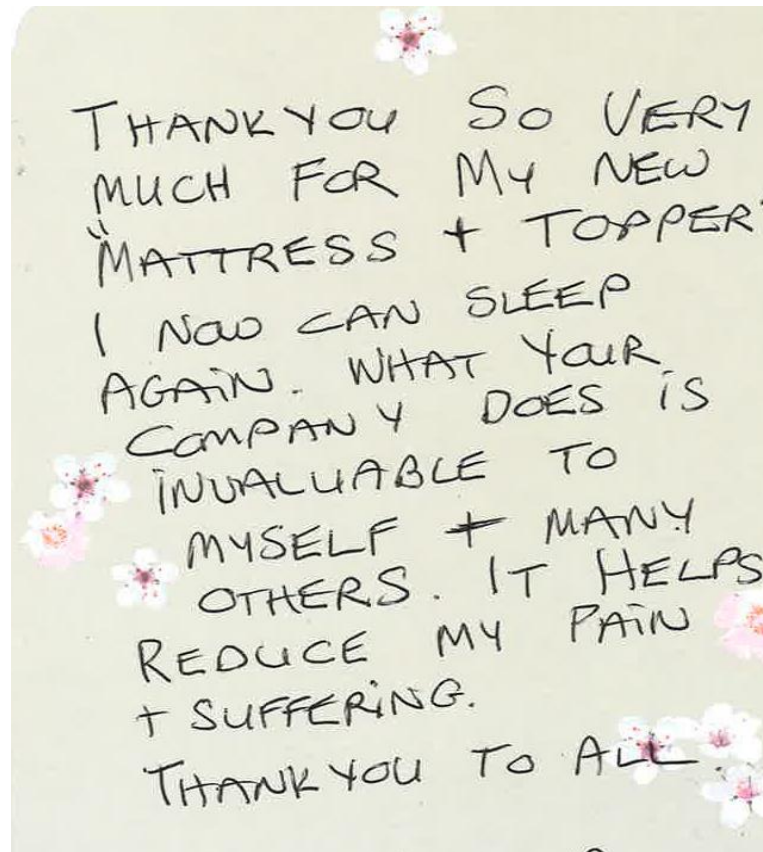 THANKYOU SO VERY
MUCH FOR MY NEW
"MATTRESS + TOPPER"
I NOW CAN SLEEP
AGAIN. WHAT YOUR
COMPANY DOES IS
INVALUABLE TO
MYSELF + MANY
OTHERS. IT HELPS
REDUCE MY PAIN
+ SUFFERING.
THANKYOU TO ALL.